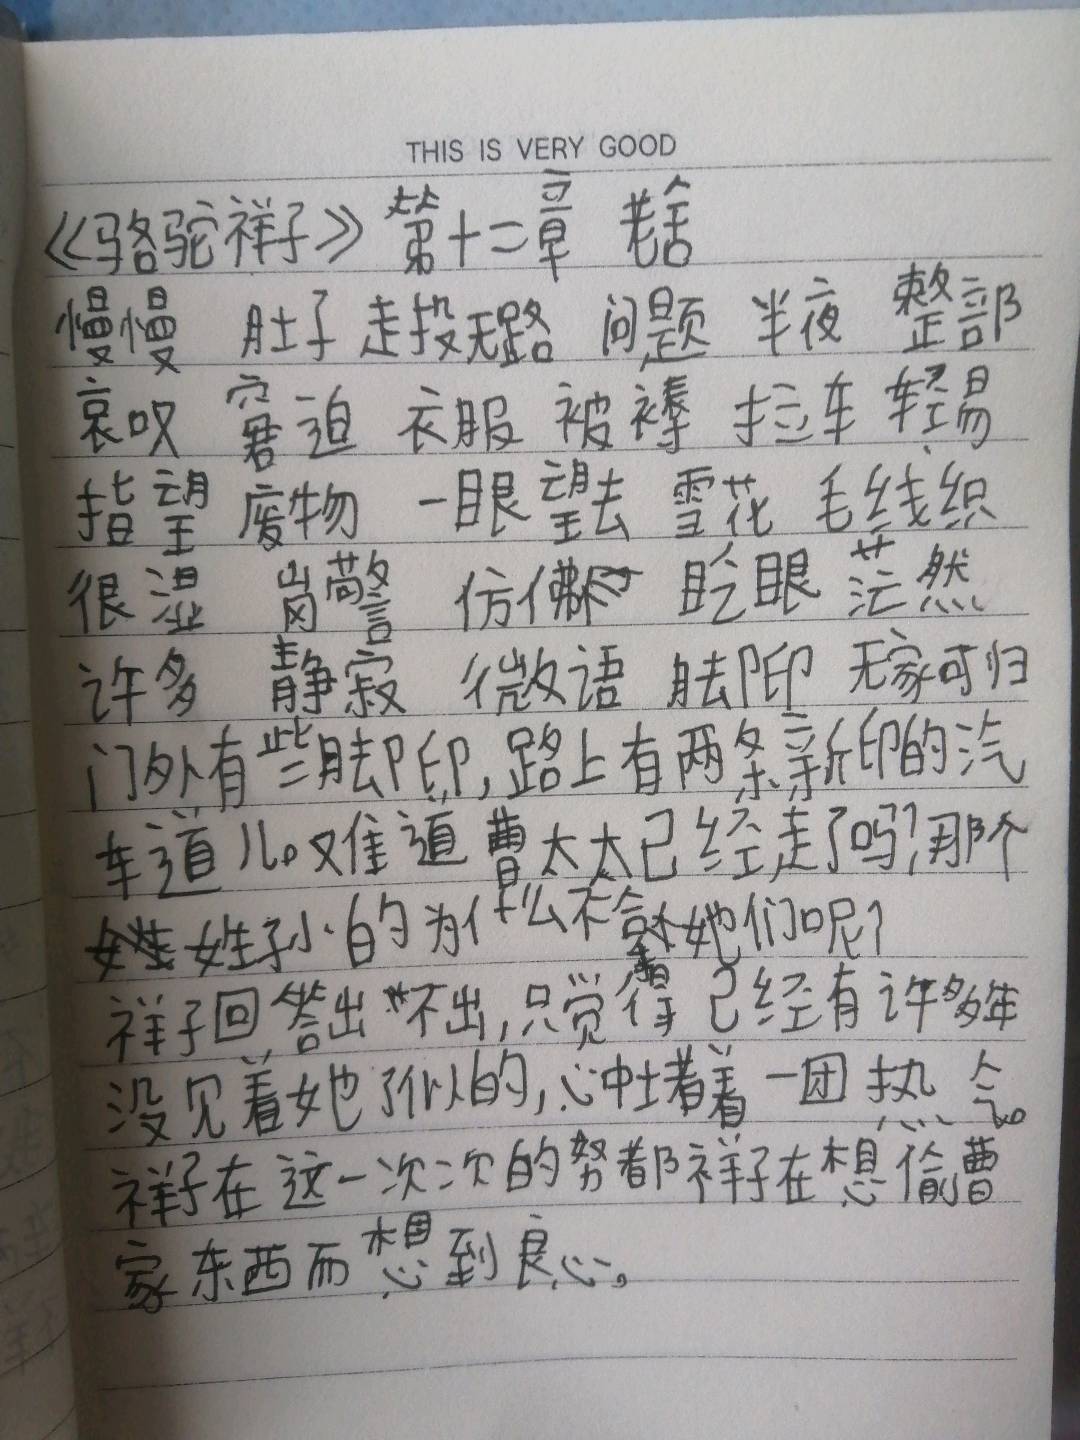 THIS IS VERY GOOD
《骆驼祥子》第十二章 老舍
慢慢 肚子 走投无路 问题 半夜 整部
哀叹 窘迫 衣服 被褥 拉车 轻易
指望 废物 一眼望去 雪花 毛线织
很湿 岗警 仿佛 眨眼 茫然
许多 静寂 微语 脚印 无家可归
门外有些脚印,路上有两条新印的汽
车道儿。难道曹太太已经走了吗?那个
姓孙小的为什么不拿她们呢?
祥子回答出不出,只觉得已经有许多年
没见着她了似的,心中堵着一团热气。
祥子在这一次次的努都祥子在想偷曹
家东西而想到良心。